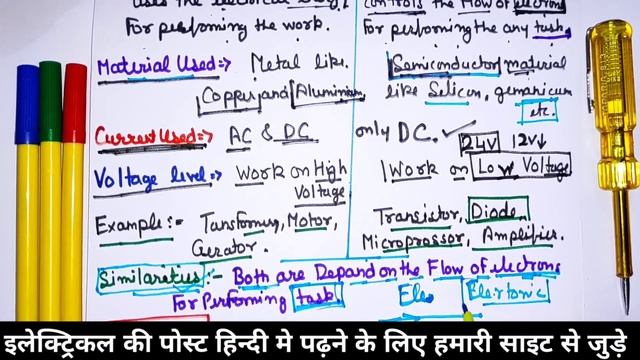 uses the electrical Energy
For performing the work.
controls the flow of electrons
For performing the any task.
Material Used:⇒ Metal like.
Copper, and Aluminium
Semiconductor material
like Selicon, gemaricum
etc.
Current Used:⇒ AC & DC
only DC. ✓ 24V 12V↓
Voltage level:⇒ Work on High
Voltage
Work on Low Voltage
Example:- Tansformer, Motor,
Gerator.
Transistor, Diode
Microprossor, Amplifier.
Similareties:- Both are Depand on the Flow of electrons
For Performing task. Ele Elertonic
इलेक्ट्रिकल की पोस्ट हिन्दी मे पढ़ने के लिए हमारी साइट से जुडे